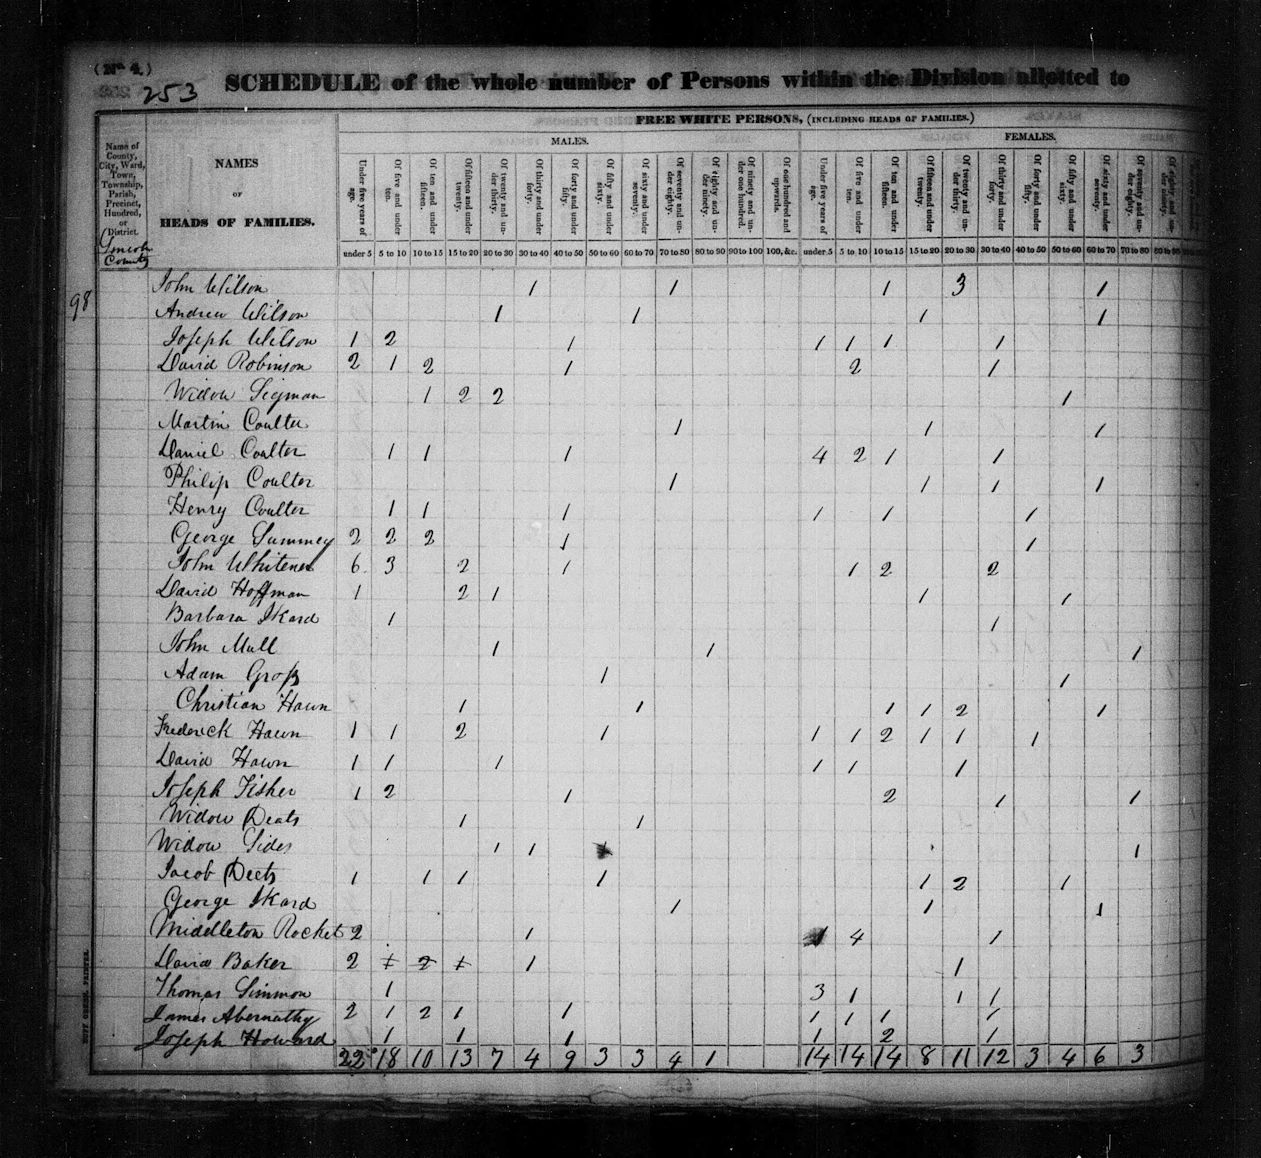 (No. 4.)
253
SCHEDULE of the whole number of Persons within the Division allotted to
FREE WHITE PERSONS, (INCLUDING HEADS OF FAMILIES.)
MALES. FEMALES.
Name of County, City, Ward, Town, Township, Parish, Precinct, Hundred, or District.
NAMES
OF
HEADS OF FAMILIES.
Under five years of age. Of five and under ten. Of ten and under fifteen. Of fifteen and under twenty. Of twenty and under thirty. Of thirty and under forty. Of forty and under fifty. Of fifty and under sixty. Of sixty and under seventy. Of seventy and under eighty. Of eighty and under ninety. Of ninety and under one hundred. Of one hundred and upwards. Under five years of age. Of five and under ten. Of ten and under fifteen. Of fifteen and under twenty. Of twenty and under thirty. Of thirty and under forty. Of forty and under fifty. Of fifty and under sixty. Of sixty and under seventy. Of seventy and under eighty.
Lincoln County
under 5 5 to 10 10 to 15 15 to 20 20 to 30 30 to 40 40 to 50 50 to 60 60 to 70 70 to 80 80 to 90 90 to 100 100, &c. under 5 5 to 10 10 to 15 15 to 20 20 to 30 30 to 40 40 to 50 50 to 60 60 to 70 70 to 80 80 to 90
John Wilson 1 1 1 3 1
98
Andrew Wilson 1 1 1 1
Joseph Wilson 1 2 1 1 1 1 1
David Robinson 2 1 2 1 2 1
Widow Sigman 1 2 2 1
Martin Coulter 1 1 1
Daniel Coulter 1 1 1 4 2 1 1
Philip Coulter 1 1 1 1
Henry Coulter 1 1 1 1 1 1
George Summey 2 2 2 1 1
John Whitener 6 3 2 1 1 2 2
David Hoffman 1 2 1 1 1
Barbara Ikard 1 1
John Mull 1 1 1
Adam Gross 1 1
Christian Hawn 1 1 1 1 2 1
Frederick Hawn 1 1 2 1 1 1 2 1 1 1
David Hawn 1 1 1 1 1 1
Joseph Fisher 1 2 1 2 1 1
Widow Deats 1 1
Widow Sides 1 1 1
Jacob Deets 1 1 1 1 1 2 1
George Ikard 1 1 1
Middleton Rocket 2 1 1 4 1
David Baker 2 1 2 1 1 1
Thomas Simmon 1 3 1 1 1
James Abernathy 2 1 2 1 1 1 1 1 1
Joseph Howard 1 1 1 1 2 1
22 18 10 13 7 4 9 3 3 4 1 14 14 14 8 11 12 3 4 6 3